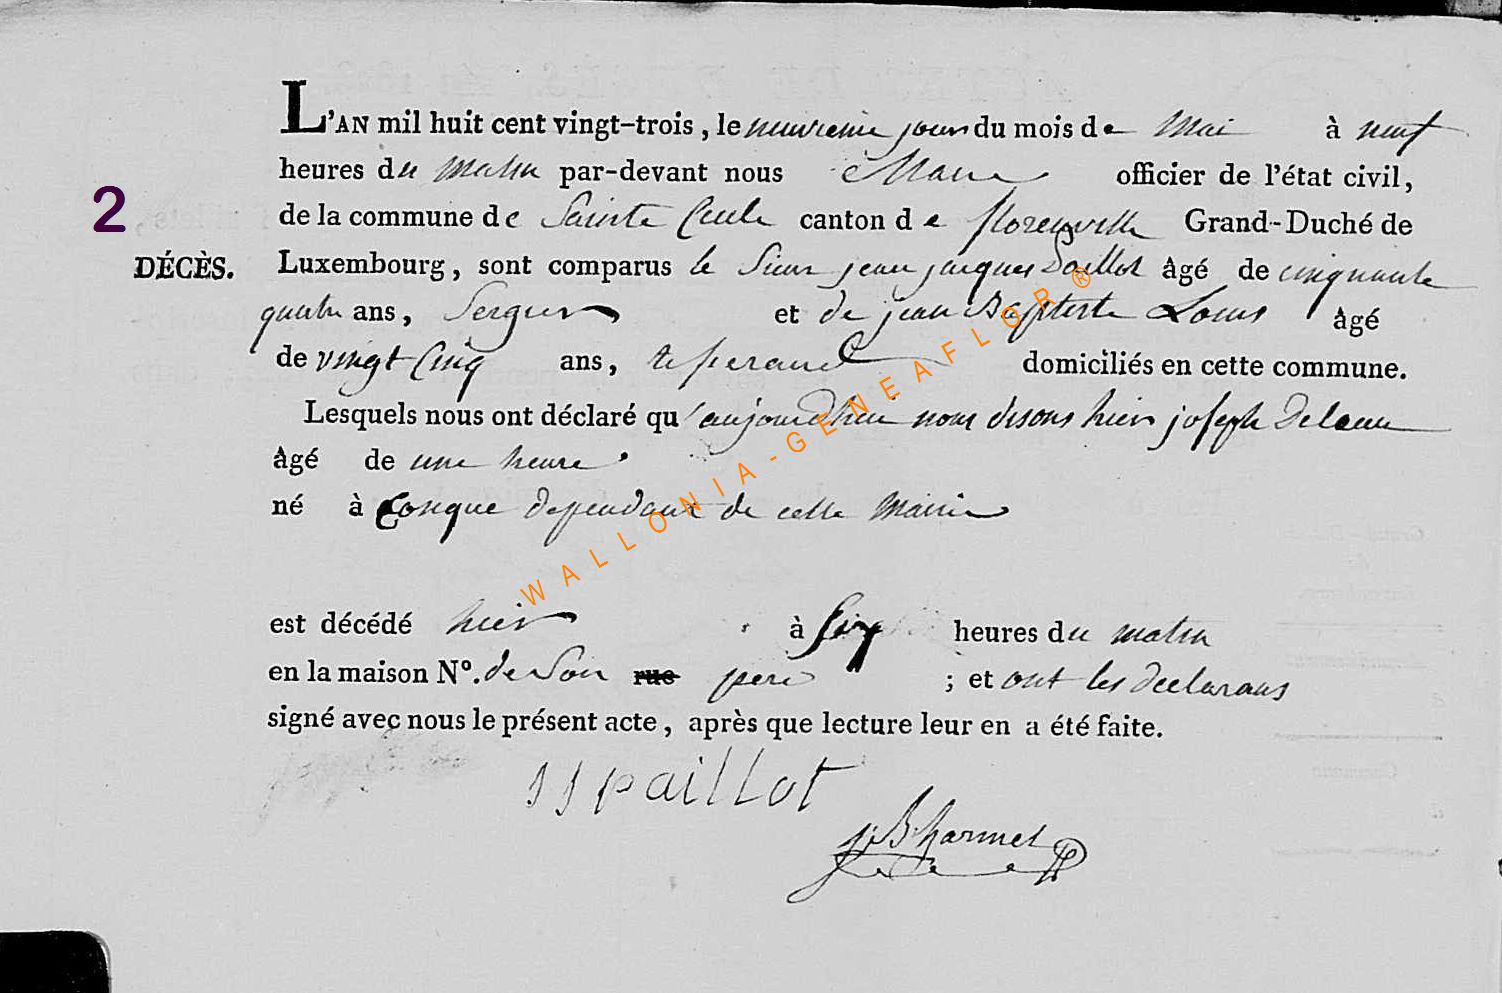 L'AN mil huit cent vingt-trois, le neuvieme jour du mois de Mai à neuf
heures du matin par-devant nous Maire officier de l'état civil,
2
de la commune de Sainte Cecile canton de florenville Grand-Duché de
DÉCÈS.
Luxembourg, sont comparus le Sieur jean jacques Paillot âgé de cinquante
quatre ans, Sergier et de jean Baptiste Louis âgé
de vingt Cinq ans, domiciliés en cette commune.
Lesquels nous ont déclaré qu'aujourdhui nous disons hier joseph
âgé de une heure
né à Conque dependant de cette Mairie
est décédé hier à heures du matin
en la maison N°. de Son rue pere ; et ont les declarans
signé avec nous le présent acte, après que lecture leur en a été faite.
JJ paillot
JB harmel
WALLONIA-GENEAFLOR ®